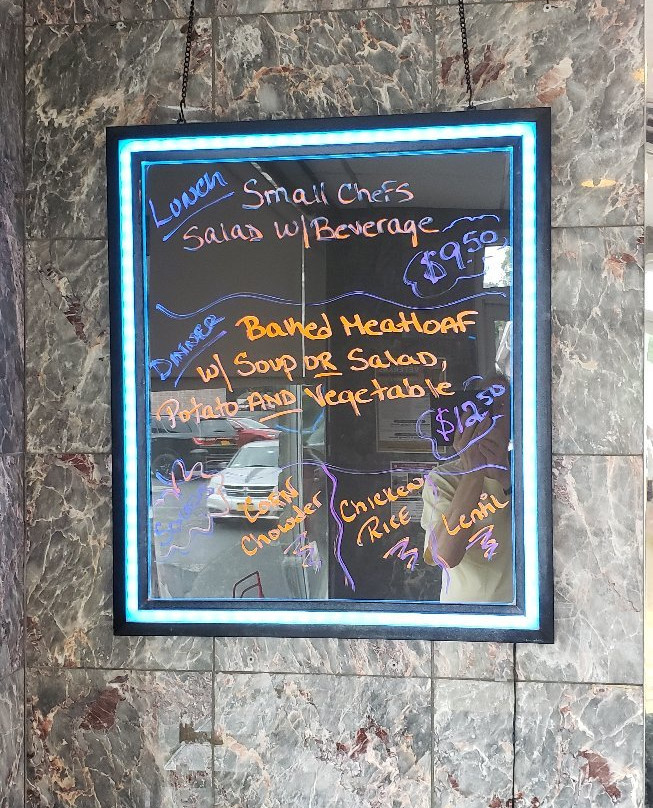 Lunch Small Chefs
Salad w/Beverage
$9.50
Dinner Baked Meatloaf
w/ Soup OR Salad,
Potato AND Vegetable
$12.50
Soups
Corn
Chowder
Chicken
Rice
Lentil